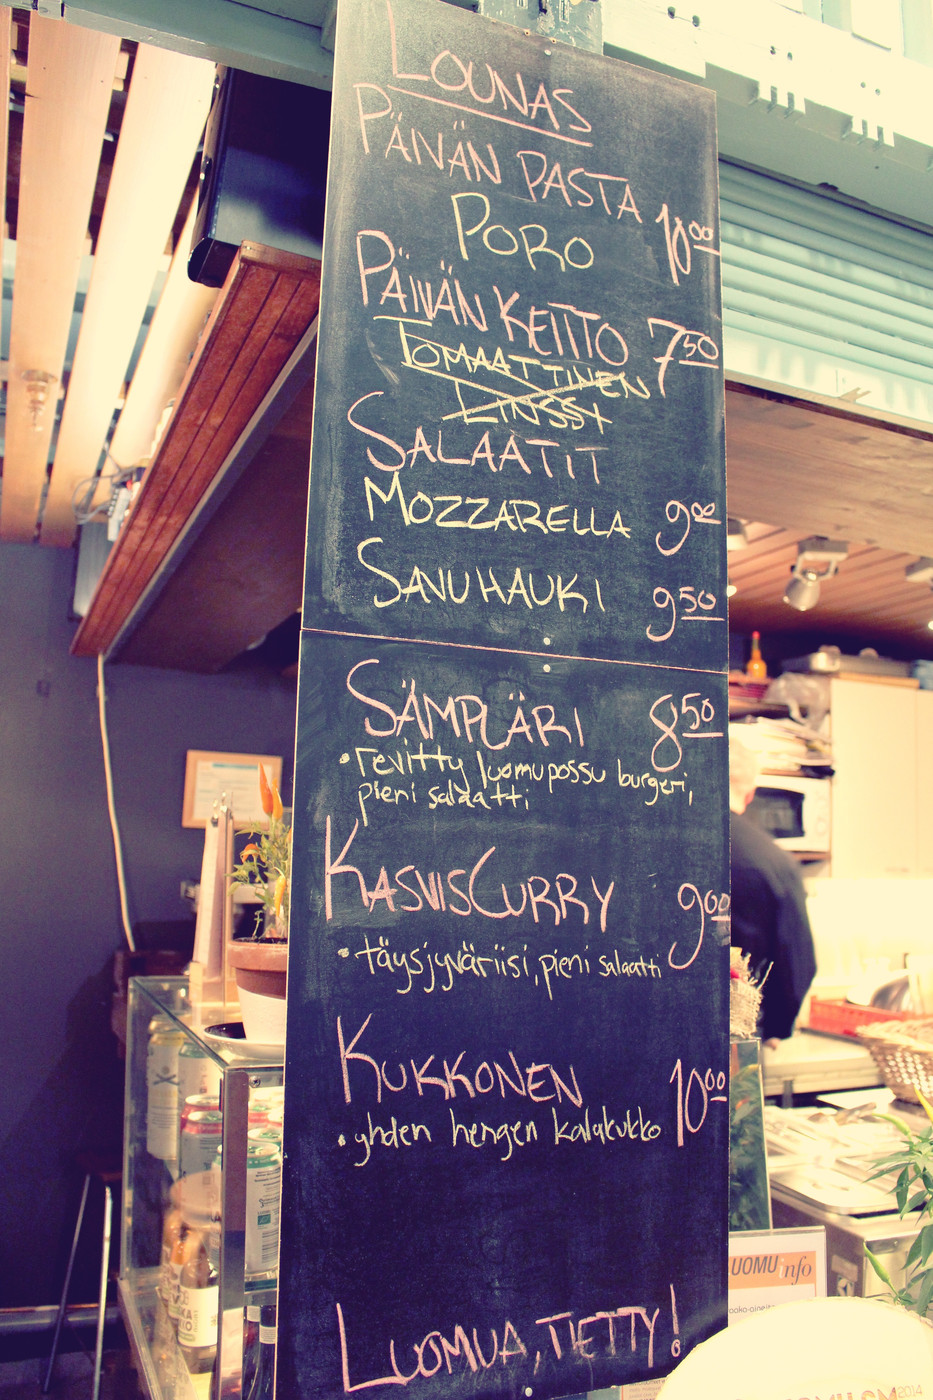 LOUNAS
PÄIVÄN PASTA 10⁰⁰
PORO
PÄIVÄN KEITTO 7⁵⁰
TOMAATTINEN
LINSSI
SALAATIT
MOZZARELLA 9⁰⁰
SAVUHAUKI 9⁵⁰
SÄMPLÄRI 8⁵⁰
• revitty luomupossu burgeri,
pieni salaatti
KASVISCURRY 9⁰⁰
• täysjyväriisi, pieni salaatti
KUKKONEN 10⁰⁰
• yhden hengen kalakukko
LUOMUA, TIETTY!
LUOMUinfo
2014